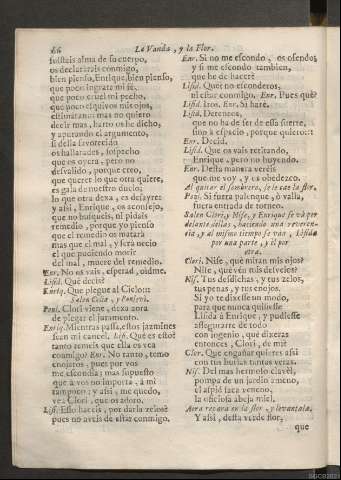 66 La Vanda, y la Flor.
fuisteis alma de su cuerpo,
os declarárais conmigo,
bien pienso, Enrique, bien pienso,
que poco ingrata mi sè,
que poco cruel mi pecho,
que poco esquivos mis ojos,
estimáran: mas no quiero
decir mas, harto os he dicho,
y apurando el argumento,
si della favorecido
os hallarades, sospecho
que os oyera, pero no
desvalido, porque creo,
que querer lo que otra quiere,
es gala de nuestro duelo;
lo que otra dexa, es desayre:
y assi, Enrique, os aconsejo,
que no busqueis, ni pidais
remedio, porque yo pienso
que el remedio os matará
mas que el mal, y será necio
el que pudiendo morir
del mal, muere del remedio.
Enr. No os vais, esperad, oidme.
Lisid. Què decis?
Enriq. Que plegue al Cielo:::
Salen Celia, y Ponlevì.
Ponl. Clori viene, dexa aora
de plegar el juramento.
Enriq. Mientras passa, estos jazmines
sean mi cancel. Lis. Que es esto?
tanto temeis que ella os vea
conmigo? Enr. No tanto, temo
enojaros, pues por vos
me escondìa; mas supuesto
que à vos no importa, à mi
tampoco: y assi, me quedo,
vea Clori, que os adoro.
Lis. Esso haceis, por darla zelos?
pues no aveis de estàr conmigo.
Enr. Si no me escondo, os ofendeis,
y si me escondo tambien,
què he de hacer?
Lisid. Què? no esconderos,
ni estàr conmigo. Enr. Pues què?
Lisid. Iros. Enr. Si harè.
Lisid. Deteneos,
que no ha de ser de essa suerte,
sino à espacio, porque quiero:::
Enr. Decid.
Lisid. Que os vais retirando,
Enrique, pero no huyendo.
Enr. Desta manera verèis
que me voy, y os obedezco.
Al quitar el sombrero, se le cae la flor.
Pon. Si fuera palenque, ò valla,
fuera entrada de torneo.
Salen Clori, y Nise, y Enrique se và por
delante dellas, haciendo una reveren-
cia, y al mismo tiempo se và, Lisida
por una parte, y èl por
otra.
Clori. Nise, què miran mis ojos?
Nise, què vèn mis desvelos?
Nis. Tus desdichas, y tus zelos,
tus penas, y tus enojos.
Si yo te dixesse un modo,
para que nunca quisiesse
Lisida à Enrique; y pudiesse
assegurarte de todo
con ingenio, què dixeras
entonces, Clori, de mi?
Clor. Que engañar quieres assi
con tus burlas tantas veras.
Nis. Del mas hermoso clavèl,
pompa de un jardin ameno,
el aspid saca veneno,
la oficiosa abeja miel.
Aora repara en la flor, y levantala.
Y assi, desta verde flor,
que